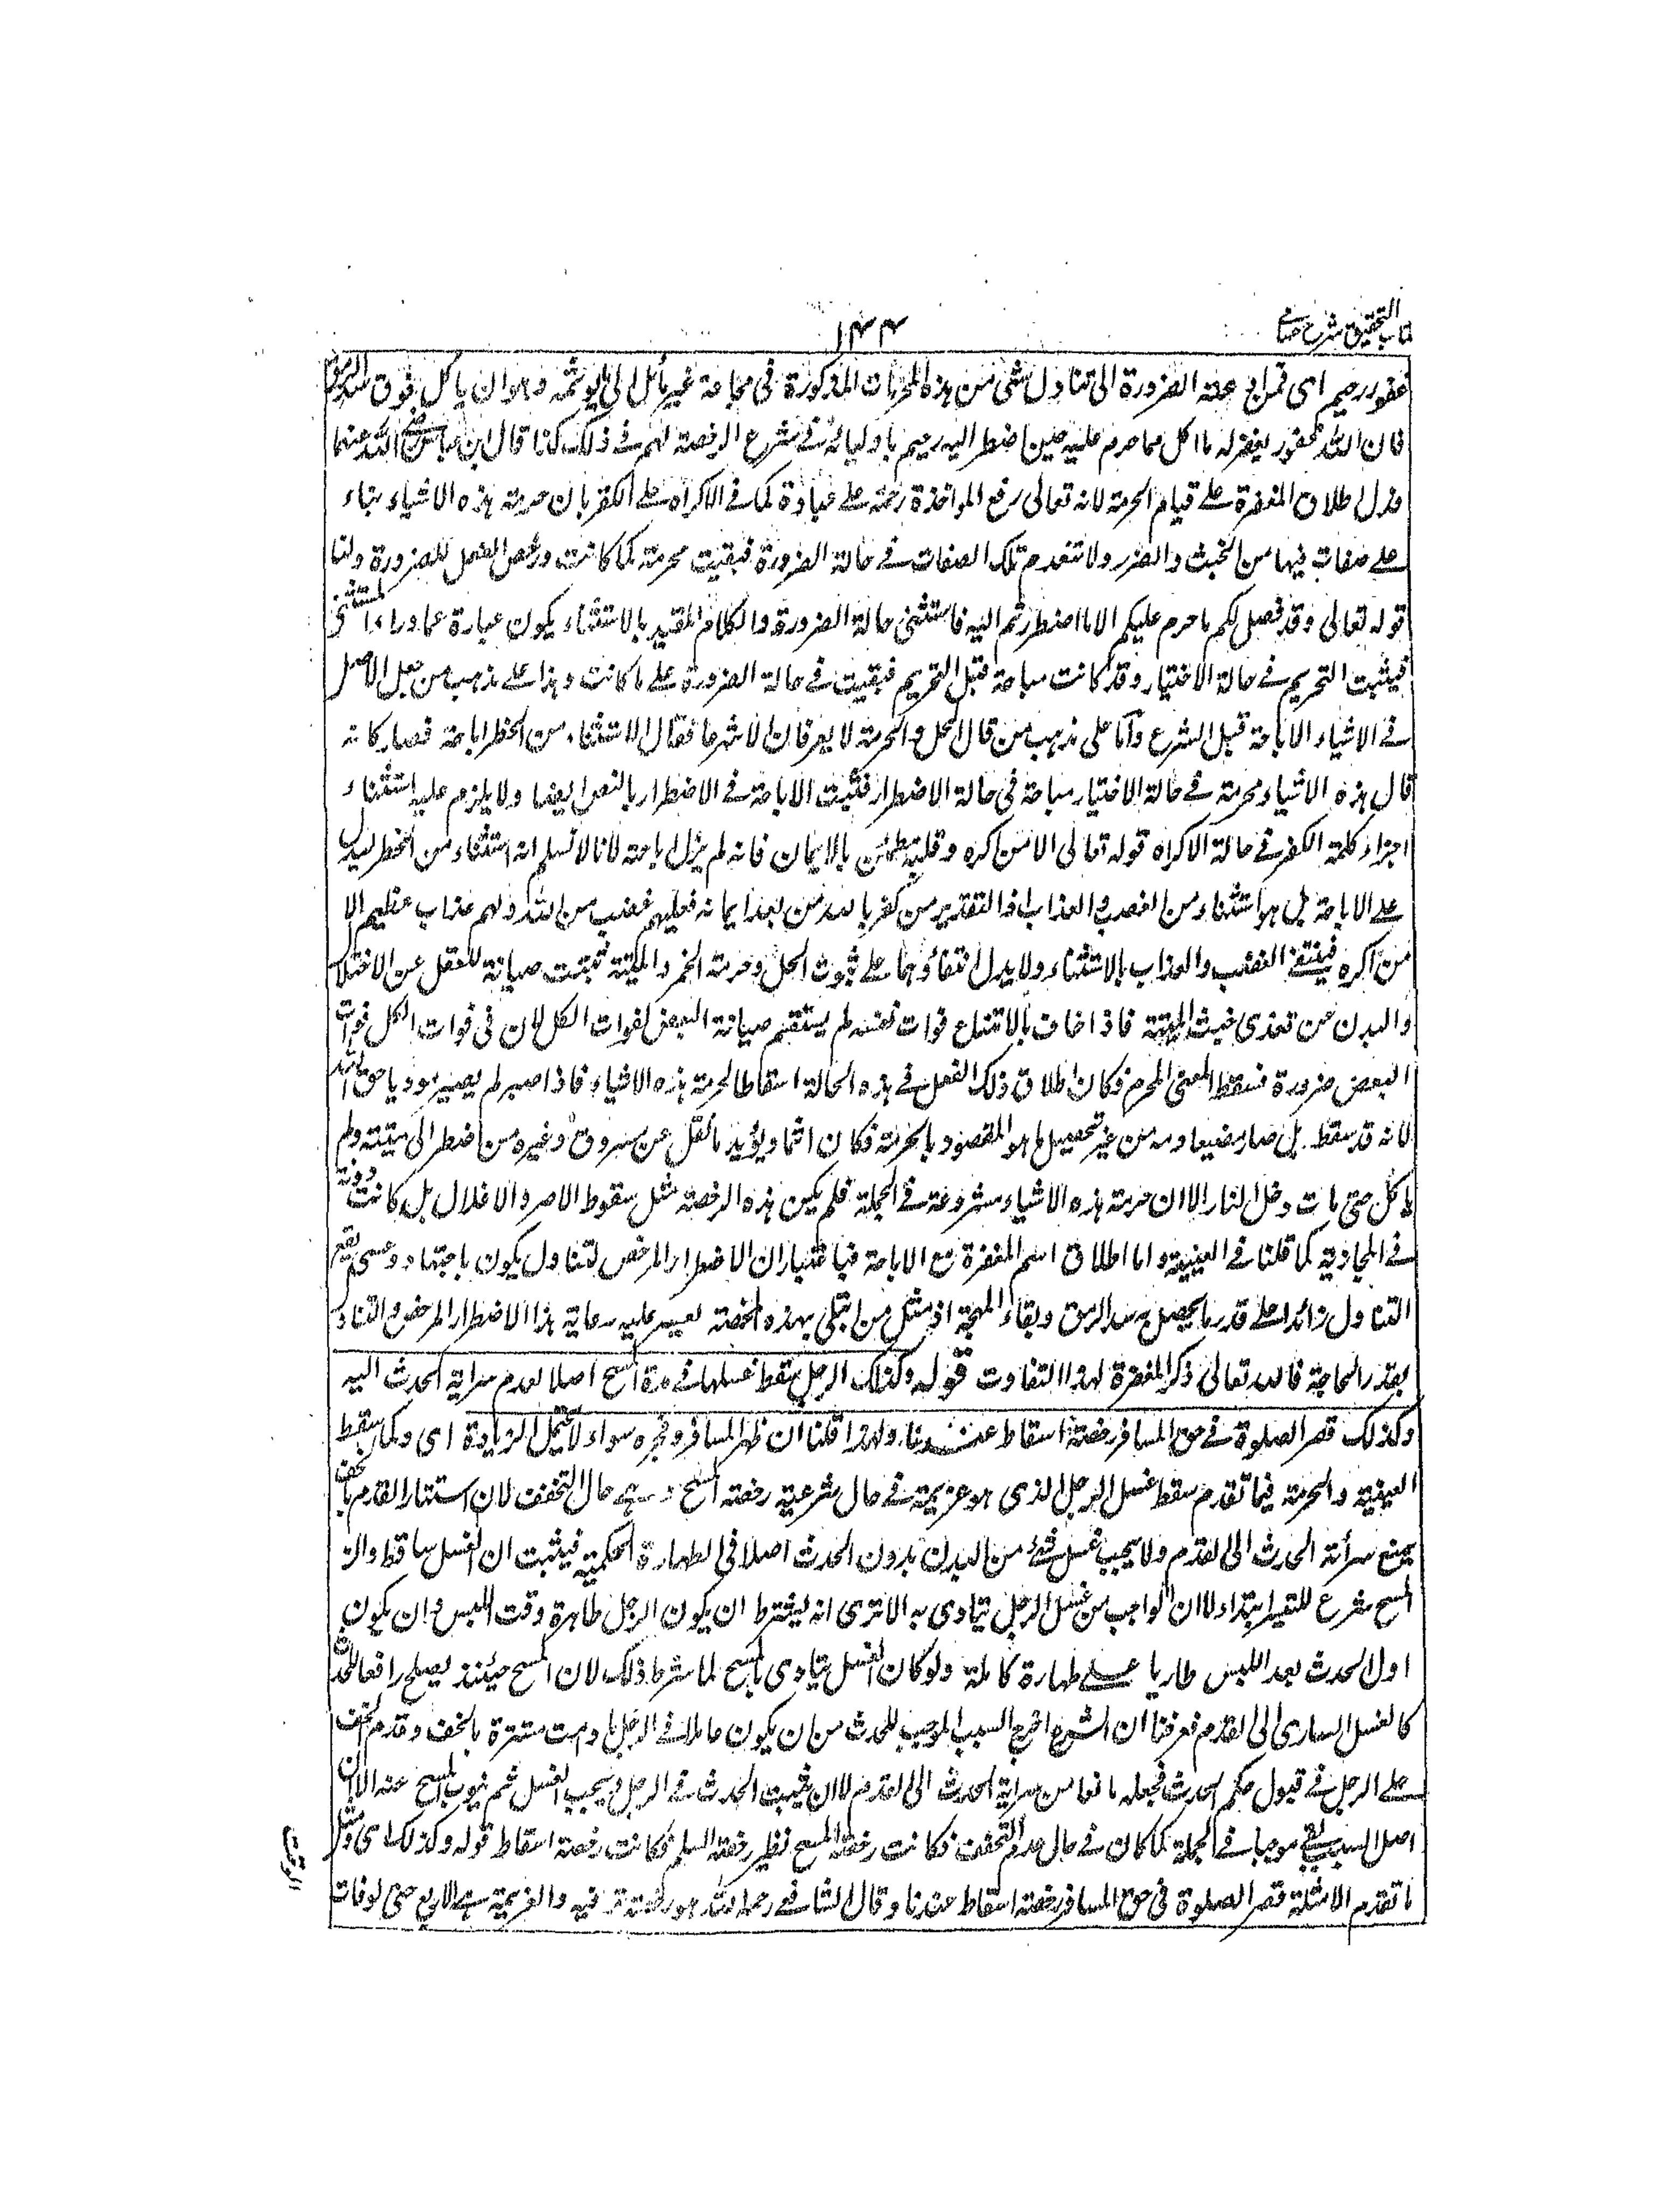 كتاب التحقيق شرح حسامى
۱۴۴
غفور رحيم اى فمن دعته الضرورة الى تناول شئ من هذه المحرمات المذكورة فى مجاعة غير مائل الى ما يؤثمه وهو ان ياكل فوق سد الرمق
فان الله غفور يغفر له ما اكل مما حرم عليه حين اضطر اليه رحيم باوليائه فى شرع الرخصة لهم فى ذلك كذا قال ابن عباس رضى الله عنهما
فدل اطلاق المغفرة على قيام الحرمة لانه تعالى رفع المواخذة رحمة على عباده كما فى الاكراه على الكفر بان حرمة هذه الاشياء بناء
على صفات فيها من الخبث والضرر ولا تنعدم تلك الصفات فى حالة الضرورة فبقيت محرمة كما كانت ورخص الفعل للضرورة ولنا
قوله تعالى وقد فصل لكم ما حرم عليكم الا ما اضطررتم اليه فاستثنى حالة الضرورة والكلام المقيد بالاستثناء يكون عبارة عما وراء المستثنى
فيثبت التحريم فى حالة الاختيار وقد كانت مباحة قبل التحريم فبقيت فى حالة الضرورة على ما كانت وهذا على مذهب من جعل الاصل
فى الاشياء الاباحة قبل الشرع واما على مذهب من قال الحل والحرمة لا يعرفان الا شرعا فقال الاستثناء من الحظر اباحة فصار كانه
قال هذه الاشياء محرمة فى حالة الاختيار مباحة فى حالة الاضطرار فثبت الاباحة فى الاضطرار بالنص ايضا ولا يلزم عليه استثناء
اجراء كلمة الكفر فى حالة الاكراه قوله تعالى الا من اكره وقلبه مطمئن بالايمان فانه لم يزل اباحته لانا لا نسلم انه استثناء من الحظر ليدل
على الاباحة بل هو استثناء من الغضب والعذاب اذ التقدير من كفر بالله من بعد ايمانه فعليهم غضب من الله ولهم عذاب عظيم الا
من اكره فينتفى الغضب والعذاب بالاستثناء ولا يدل انتفاؤهما على ثبوت الحل وحرمة الخمر والميتة تثبتت صيانة للعقل عن الاختلا
والبدن عن تعذى خبث الميتة فاذا خاف بالامتناع فوات نفسه لم يستقم صيانة البعض لفوات الكل لان فى فوات الكل فوات
البعض ضرورة فسقط المعنى المحرم فكان اطلاق ذلك الفعل فى هذه الحالة اسقاطا لحرمة هذه الاشياء فاذا صبر لم يصير مؤديا حق الله
لانه قد سقط بل صار مضيعا دمه من غير تحصيل ما هو المقصود بالحرمة فكان اثما ويؤيد ما نقل عن مسروق وغيره من اضطر الى ميتة ولم
ياكل حتى مات دخل النار الا ان حرمة هذه الاشياء مشروعة فى الجملة فلم يكن هذه الرخصة مثل سقوط الاصر والاغلال بل كانت دونه
فى المجازية كما قلنا فى العينية واما اطلاق اسم المغفرة مع الاباحة فباعتبار ان الاضطرار المرخص لتناول يكون باجتهاد وعسى يقع
التناول زائدا على قدر ما يحصل به سد الرمق وبقاء المهجة اذ مثل من ابتلى بهذه المخمصة يعسر عليه رعاية هذا الاضطرار المرخص والتناو
بقدر الحاجة فالله تعالى ذكر المغفرة لهذا التفاوت قوله وكذلك الرجل سقط غسلها فى مدة المسح اصلا لعدم سراية الحدث اليه
وكذلك قصر الصلوة فى حق المسافر رخصة اسقاط عندنا ولهذا قلنا ان ظهر المسافر وفجره سواء لا تحتمل الزيادة اى وكما سقط
العينية والحرمة فيما تقدم سقط غسل الرجل الذى هو عزيمة فى حال شرعية رخصة المسح وهى حال التخفف لان استتار القدم بالخف
يمنع سراية الحدث الى القدم ولا يجب غسل شئ من البدن بدون الحدث اصلا فى الطهارة الحكمية فيثبت ان الغسل ساقط وان
المسح شرع للتيسير ابتداء لا ان الواجب من غسل الرجل يتادى به الا ترى انه يشترط ان يكون الرجل طاهرة وقت اللبس وان يكون
اول الحدث بعد اللبس طاريا على طهارة كاملة ولو كان الغسل يتادى بالمسح لما شرط ذلك لان المسح حينئذ يصلح رافعا للحدث
كالغسل السارى الى القدم فعرفنا ان الشرع اخرج السبب الموجب للحدث من ان يكون عاملا فى الرجل ما دامت مستترة بالخف وقدم الخف
على الرجل فى قبول حكم الحدث فجعله مانعا من سراية الحدث الى القدم لا ان يثبت الحدث فى الرجل ويجب الغسل ثم ينوب المسح عنه الا ان
اصل السبب بقى موجبا فى الجملة كما كان فى حال عدم التخفف فكانت رخصة المسح نظير رخصة السلم فكانت رخصة اسقاط قوله وكذلك اى ومثل
ما تقدم الامثلة قصر الصلوة فى حق المسافر رخصة اسقاط عندنا وقال الشافعى رحمه الله هو رخصة ترفيه والعزيمة هى الاربع حتى لو فات
الوقت